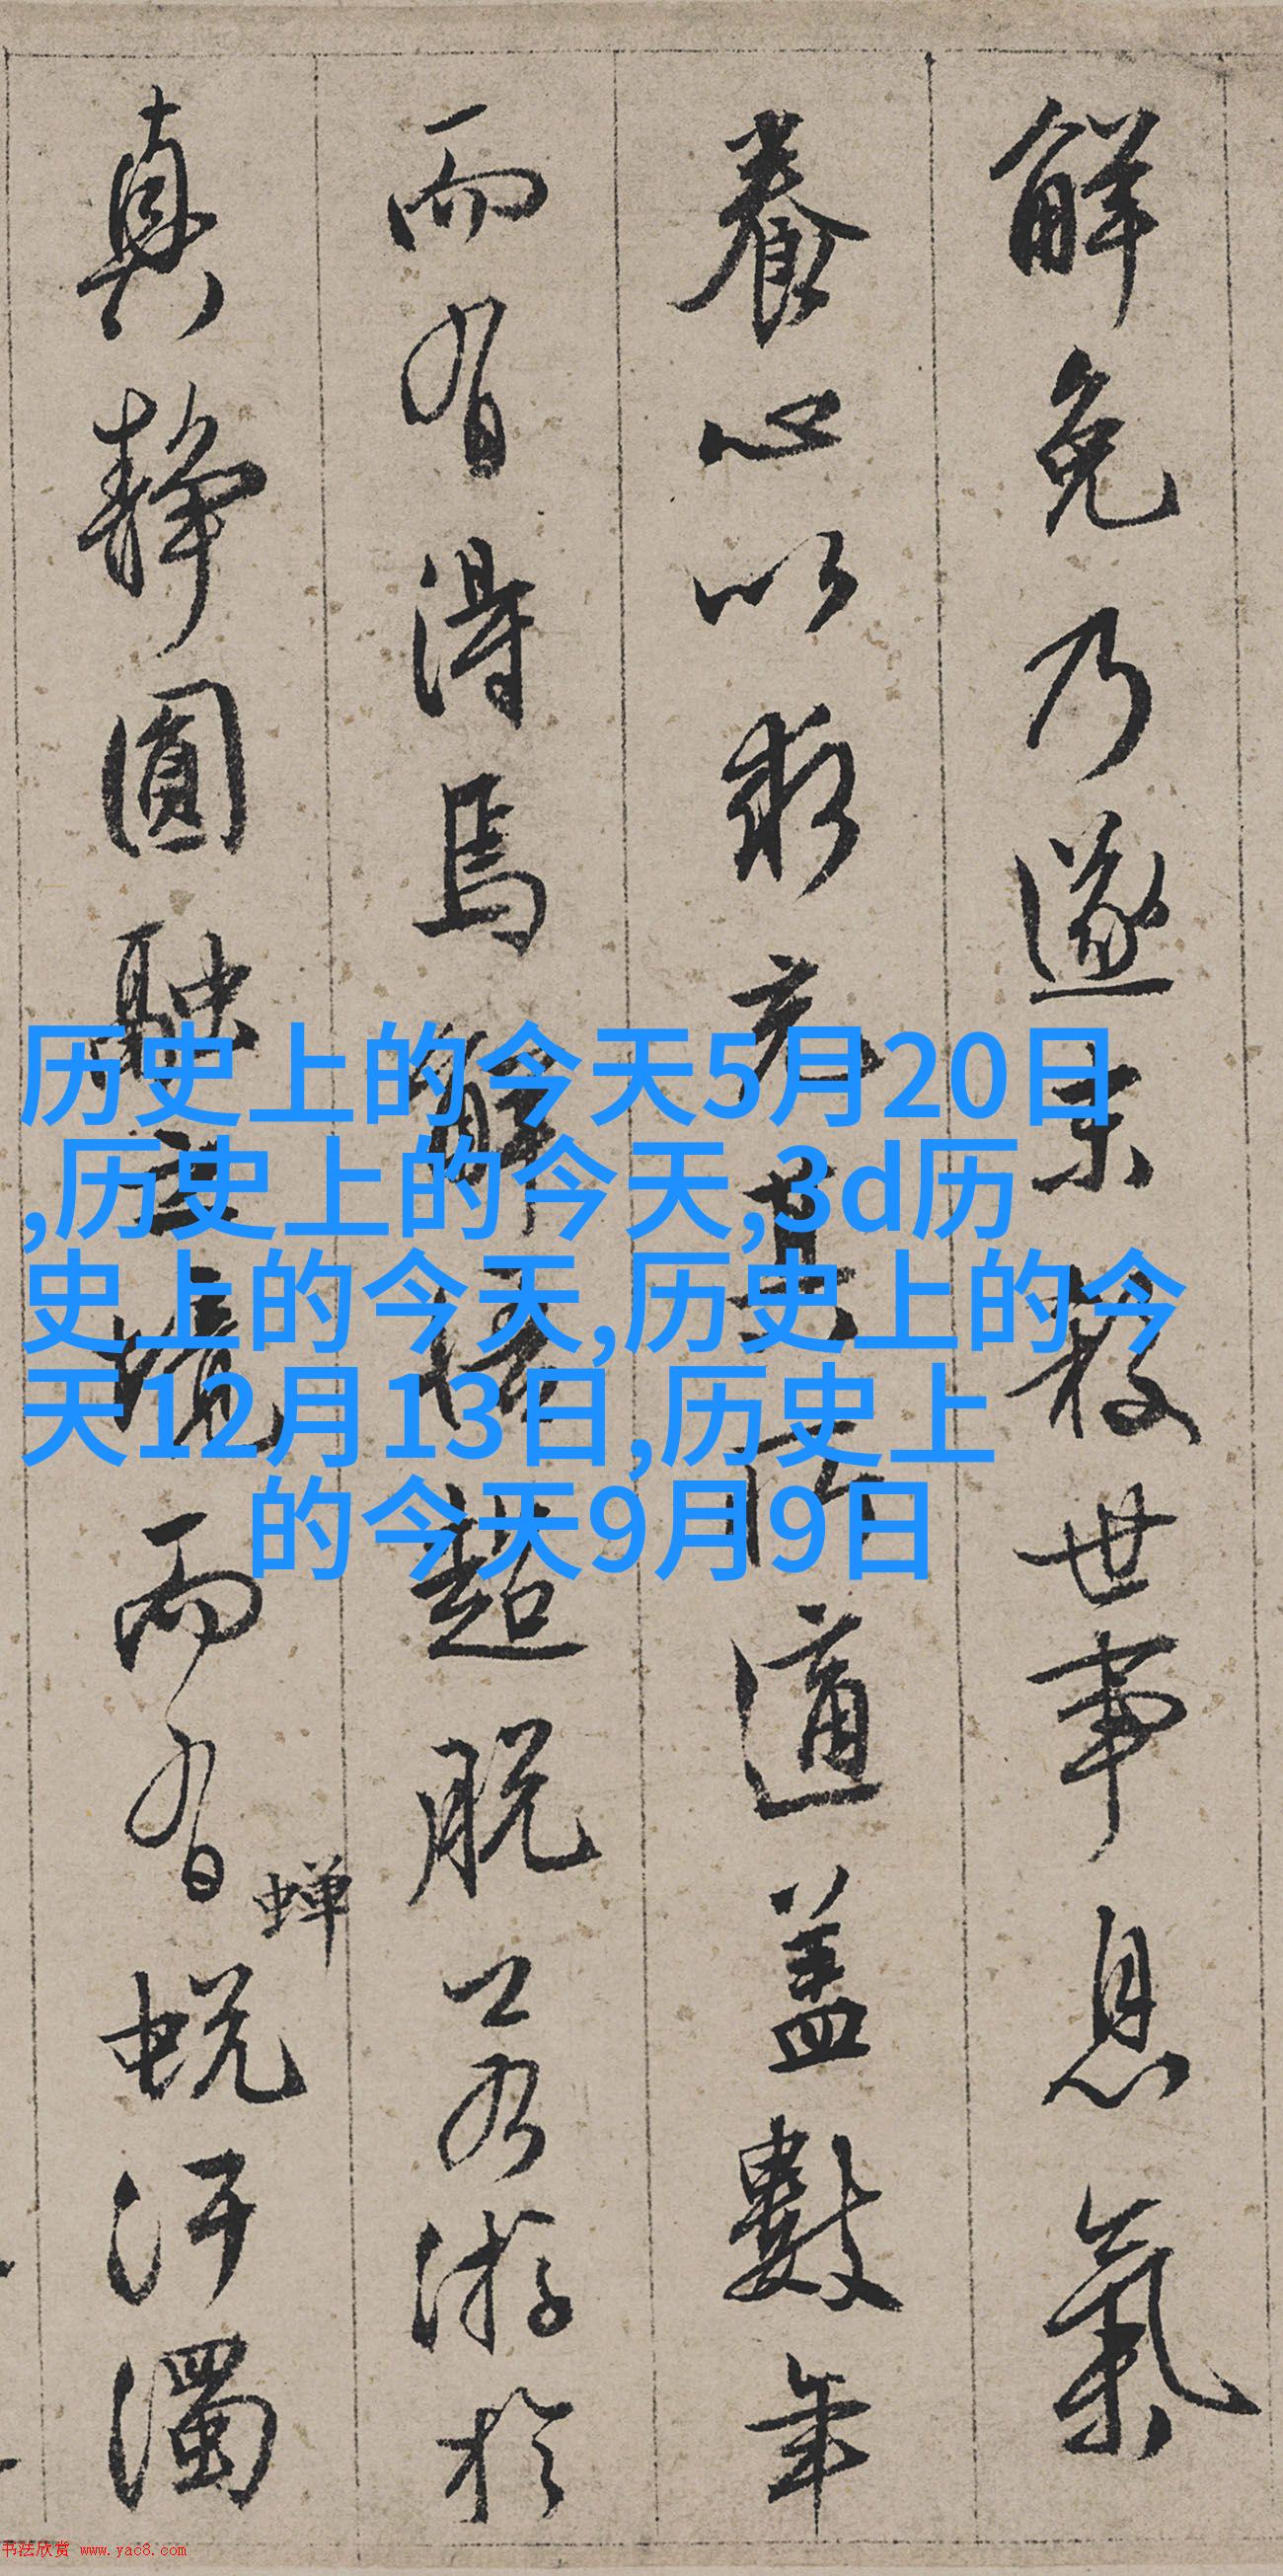 解免乃遂末殺世事息氣
養心以求充其所適蓋數年
而有得焉解悟超脫已若游於
真靜圓融之境而有蟬蛻汙濁
历史上的今天5月20日
,历史上的今天,3d历
史上的今天,历史上的今
天12月13日,历史上
的今天9月9日
书法欣赏 www.yac8.com